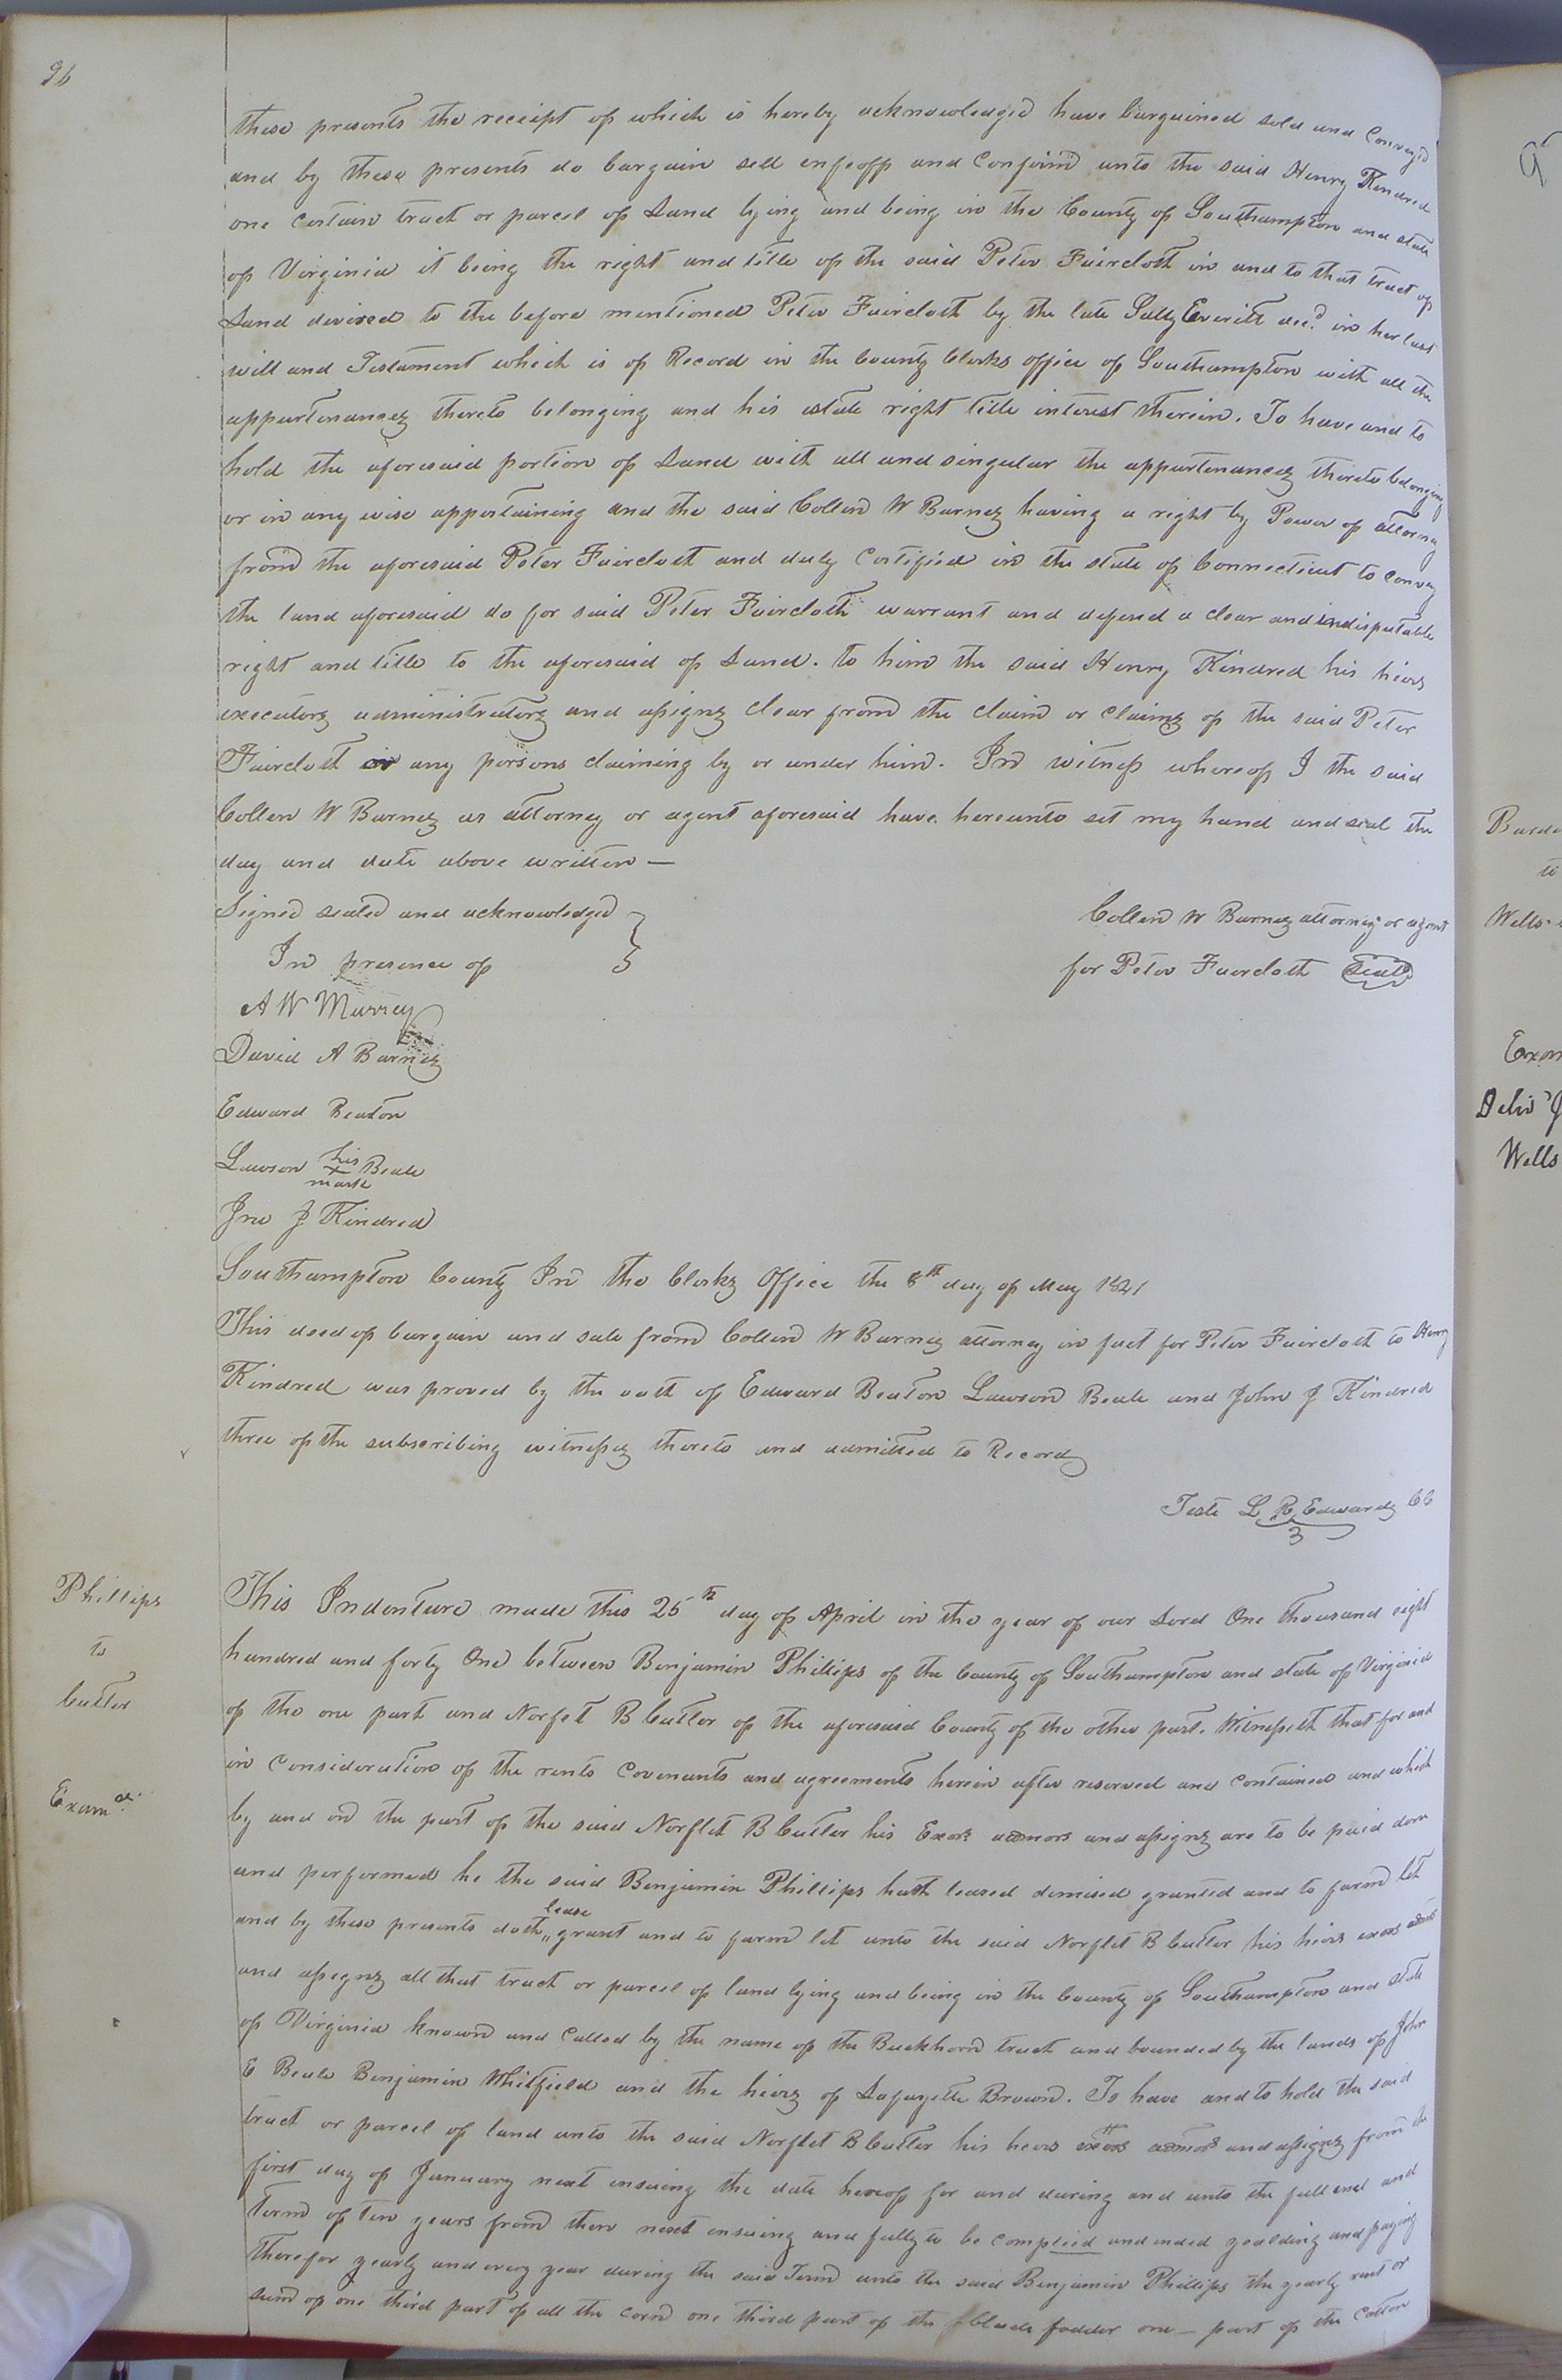 96
these presents the receipt of which is hereby acknowledged have bargained sold and Conveyed
and by these presents do bargain sell enfeoff and Confirm unto the said Henry Kindred
one certain tract or parcel of Land lying and being in the County of Southampton and state
of Virginia it being the right and title of the said Peter Faircloth in and to that tract of
Land devised to the before mentioned Peter Faircloth by the late Sally Everitt decd in her last
will and Testament which is of Record in the County Clerks office of Southampton with all the
appurtenances thereto belonging and his estate right title interest therein. To have and to
hold the aforesaid portion of Land with all and singular the appurtenances thereto belonging
or in any wise appertaining and the said Collen W Barnes having a right by Power of attorney
from the aforesaid Peter Faircloth and duly Certified in the state of Connecticut to convey
the land aforesaid do for said Peter Faircloth warrant and defend a clear and indisputable
right and title to the aforesaid of Land. to him the said Henry Kindred his heirs
executors administrators and assigns clear from the claim or claims of the said Peter
Faircloth or any persons claiming by or under him. In witness whereof I the said
Collen W Barnes as attorney or agent aforesaid have hereunto set my hand and seal the
day and date above written —
Signed sealed and acknowledged }
In presence of
Collen W Barnes attorney or agent
for Peter Faircloth Seal
A W Murray
David A Barnes
Edward Beaton
Lawson his x mark Beale
Jno J Kindred
Southampton County In the Clerks Office the 8th day of May 1841
This deed of bargain and sale from Collen W Barnes attorney in fact for Peter Faircloth to Henry
Kindred was proved by the oath of Edward Beaton Lawson Beale and John J Kindred
three of the subscribing witnesses thereto and admitted to Record
Teste L R Edwards CC
Phillips
to
Cutler
Examd.
This Indenture made this 25th day of April in the year of our Lord One thousand eight
hundred and forty One between Benjamin Phillips of the County of Southampton and state of Virginia
of the one part and Norflet B Cutler of the aforesaid County of the other part. Witnesseth that for and
in Consideration of the rents Covenants and agreements herein after reserved and contained and which
by and on the part of the said Norflet B Cutler his Exors admors and assigns are to be paid done
and performed he the said Benjamin Phillips hath leased demised granted and to farm let
and by these presents doth lease grant and to farm let unto the said Norflet B Cutler his heirs exors admors
and assigns all that tract or parcel of land lying and being in the County of Southampton and state
of Virginia known and Called by the name of the Buckhorn tract and bounded by the lands of John
E Beale Benjamin Whitfield and the heirs of Lafayette Brown. To have and to hold the said
tract or parcel of land unto the said Norflet B Cutler his heirs exors admors and assigns from the
first day of January next ensuing the date hereof for and during and unto the full end and
Term of ten years from then next ensuing and fully to be compleid and ended yealding and paying
therefor yearly and every year during the said Term unto the said Benjamin Phillips the yearly rent or
sum of one third part of all the corn one third part of the blade fodder one — part of the Cotton
Barde
to
Wells
Exam
Deliv
Wells